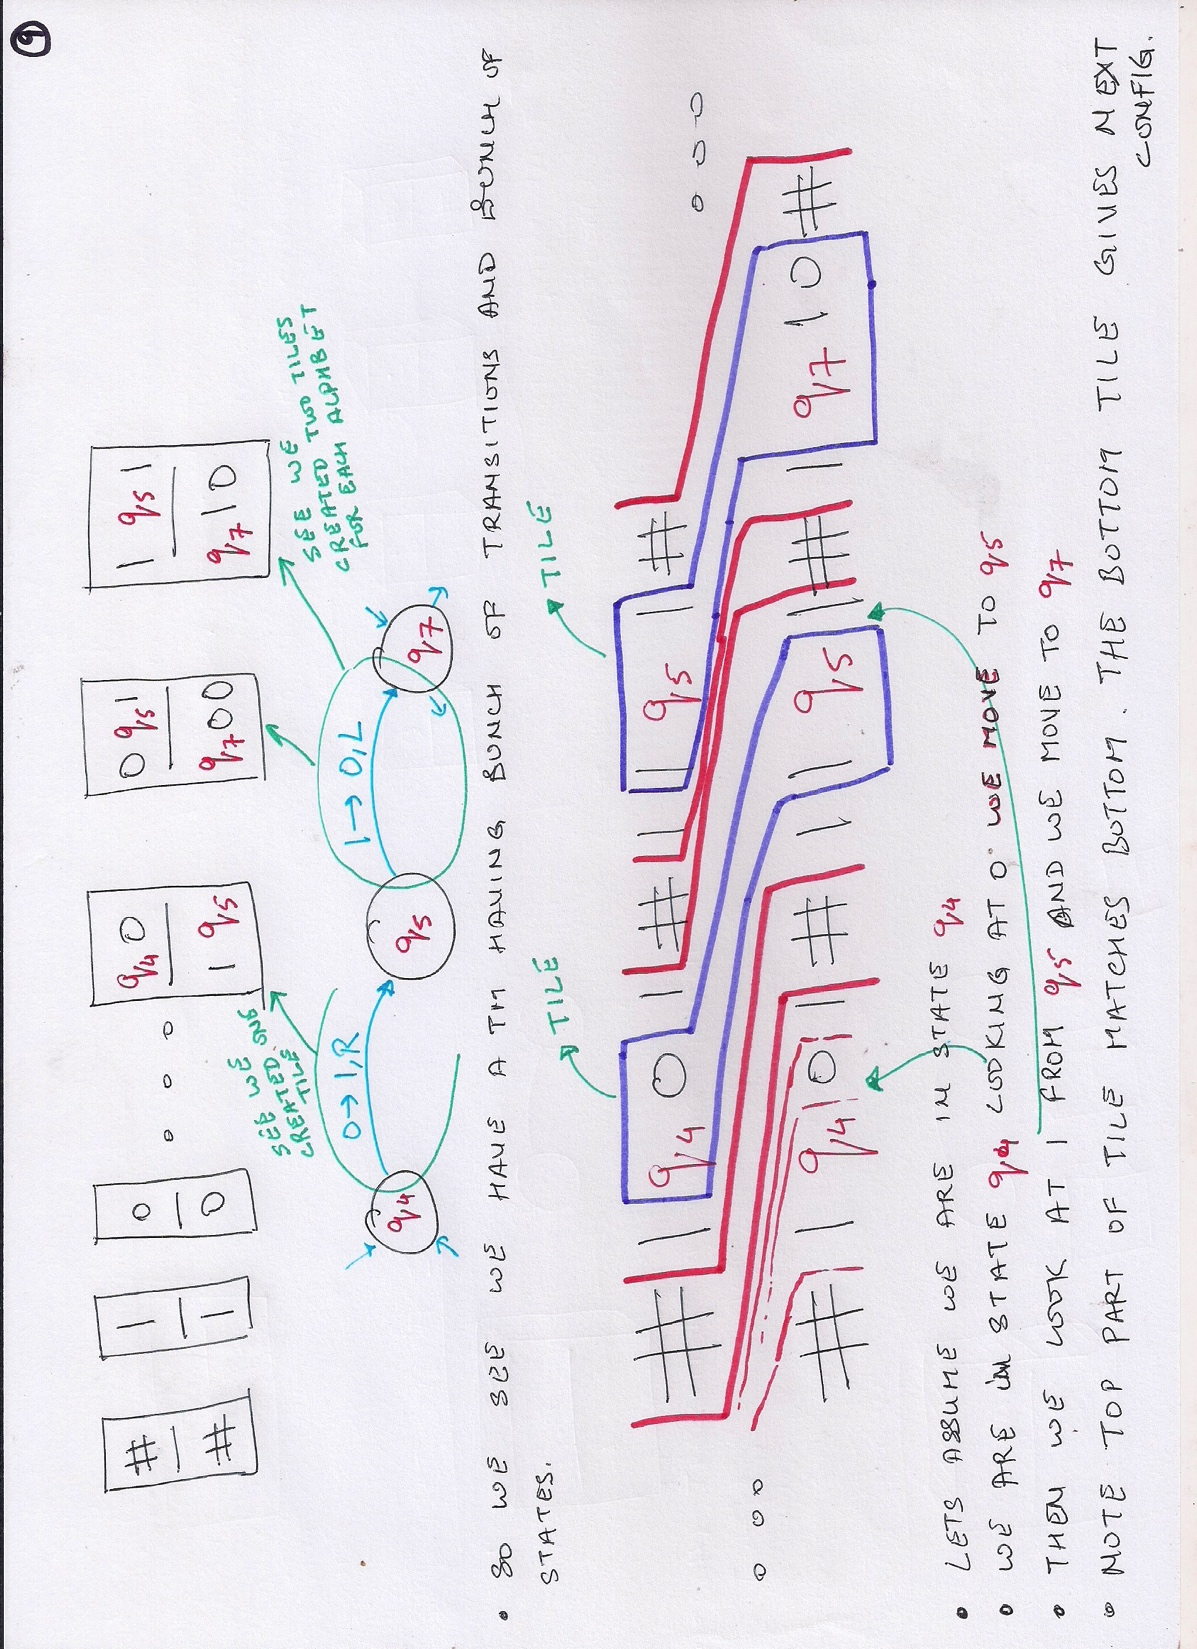 9
# 1 0 o o o q4 0 0 q5 1 1 q5 1
# 1 0 1 q5 q7 0 0 q7 1 0
SEE WE CREATED ONE TILE
SEE WE
CREATED TWO TILES
FOR EACH ALPHBET
0→1,R 1→0,L
q4 q5 q7
• SO WE SEE WE HAVE A TM HAVING BUNCH OF TRANSITIONS AND BUNCH OF
STATES.
TILE TILE
# 1 q4 0 1 # 1 1 q5 1 # o o o
o o o # 1 q4 0 1 # 1 1 q5 1 # 1 q7 1 0 #
• LETS ASSUME WE ARE IN STATE q4
• WE ARE in STATE q4 LOOKING AT 0. WE MOVE TO q5
• THEN WE LOOK AT 1 FROM q5 AND WE MOVE TO q7
• NOTE TOP PART OF TILE MATCHES BOTTOM. THE BOTTOM TILE GIVES NEXT
CONFIG.